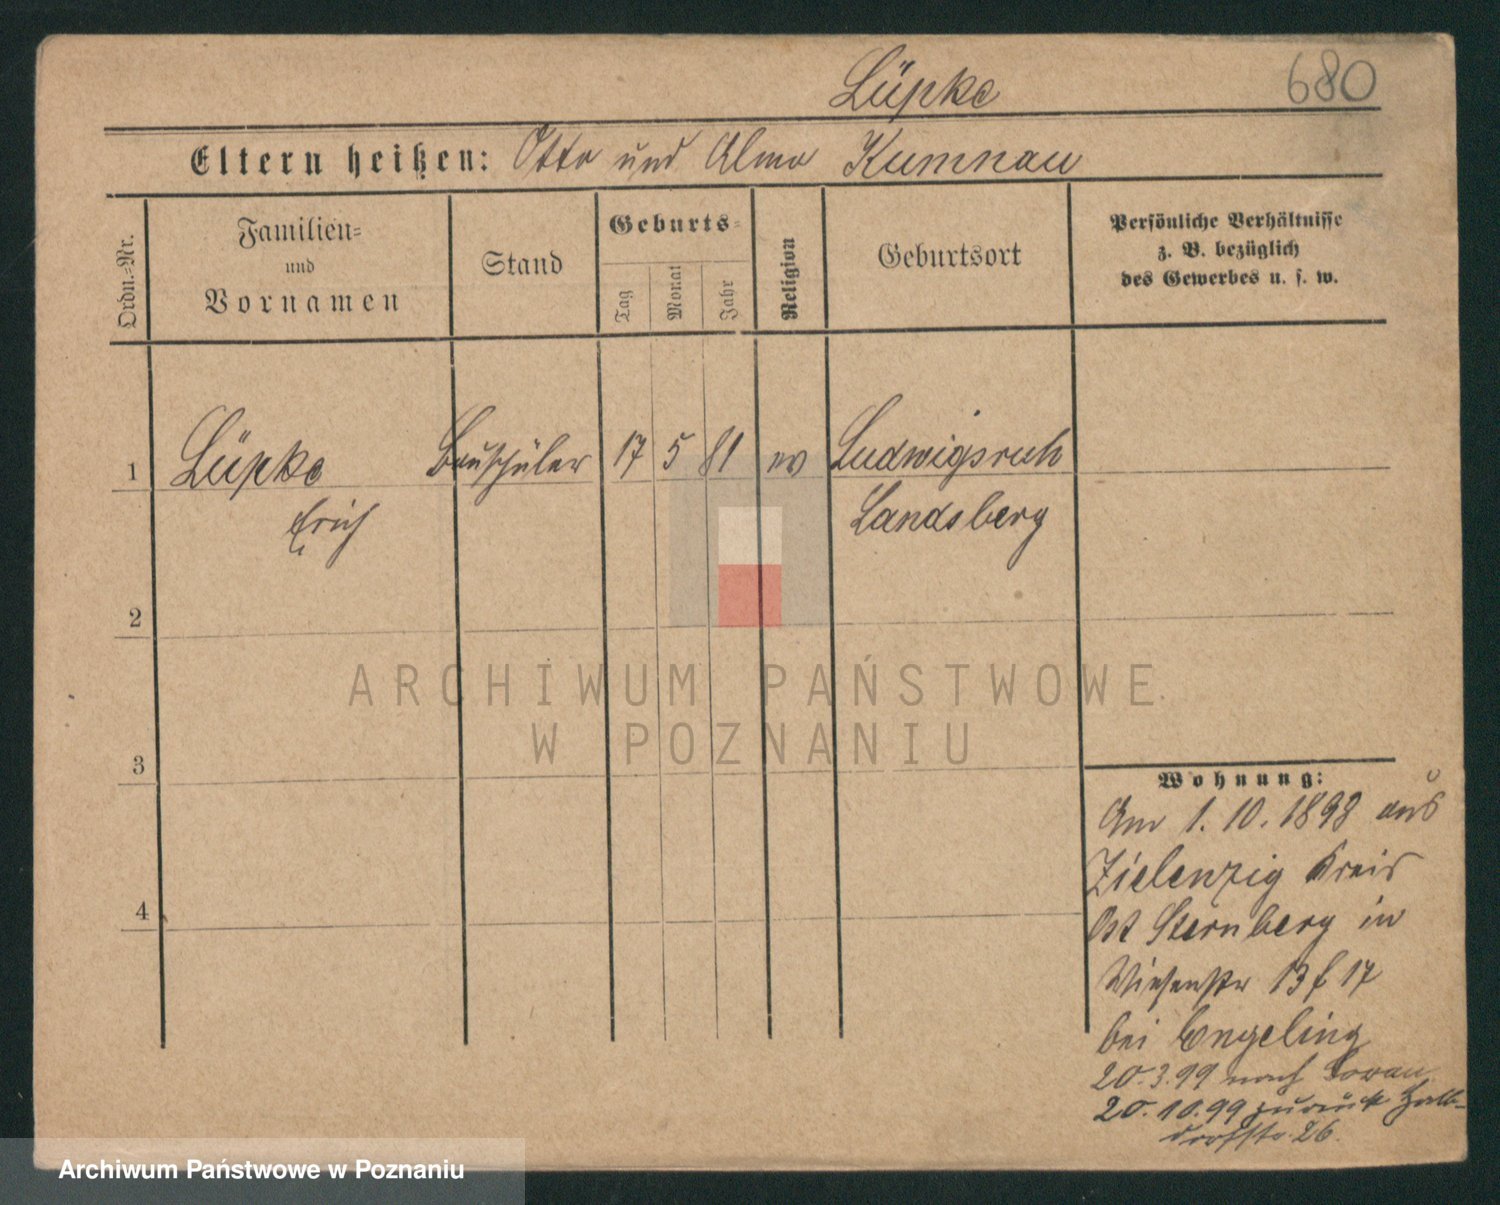 680
Lüpke
Eltern heißen: Otto und Alma Kumnau
Ordn.-Nr.
Familien-
und
Vornamen
Stand
Geburts-
Tag
Monat
Jahr
Religion
Geburtsort
Persönliche Verhältnisse
z. B. bezüglich
des Gewerbes u. s. w.
1 Lüpke Bauschüler 17 5 81 ev Ludwigsruh
Erich Landsberg
2
3
4
Wohnung:
Am 1. 10. 1898 aus
Zielenzig Kreis
Ost Sternberg in
Wiesenstr 13 f 17
bei Engeling
20.3.99 nach Sorau
20.10.99 zurück Halb-
dorfstr. 26.
ARCHIWUM PAŃSTWOWE
W POZNANIU
Archiwum Państwowe w Poznaniu